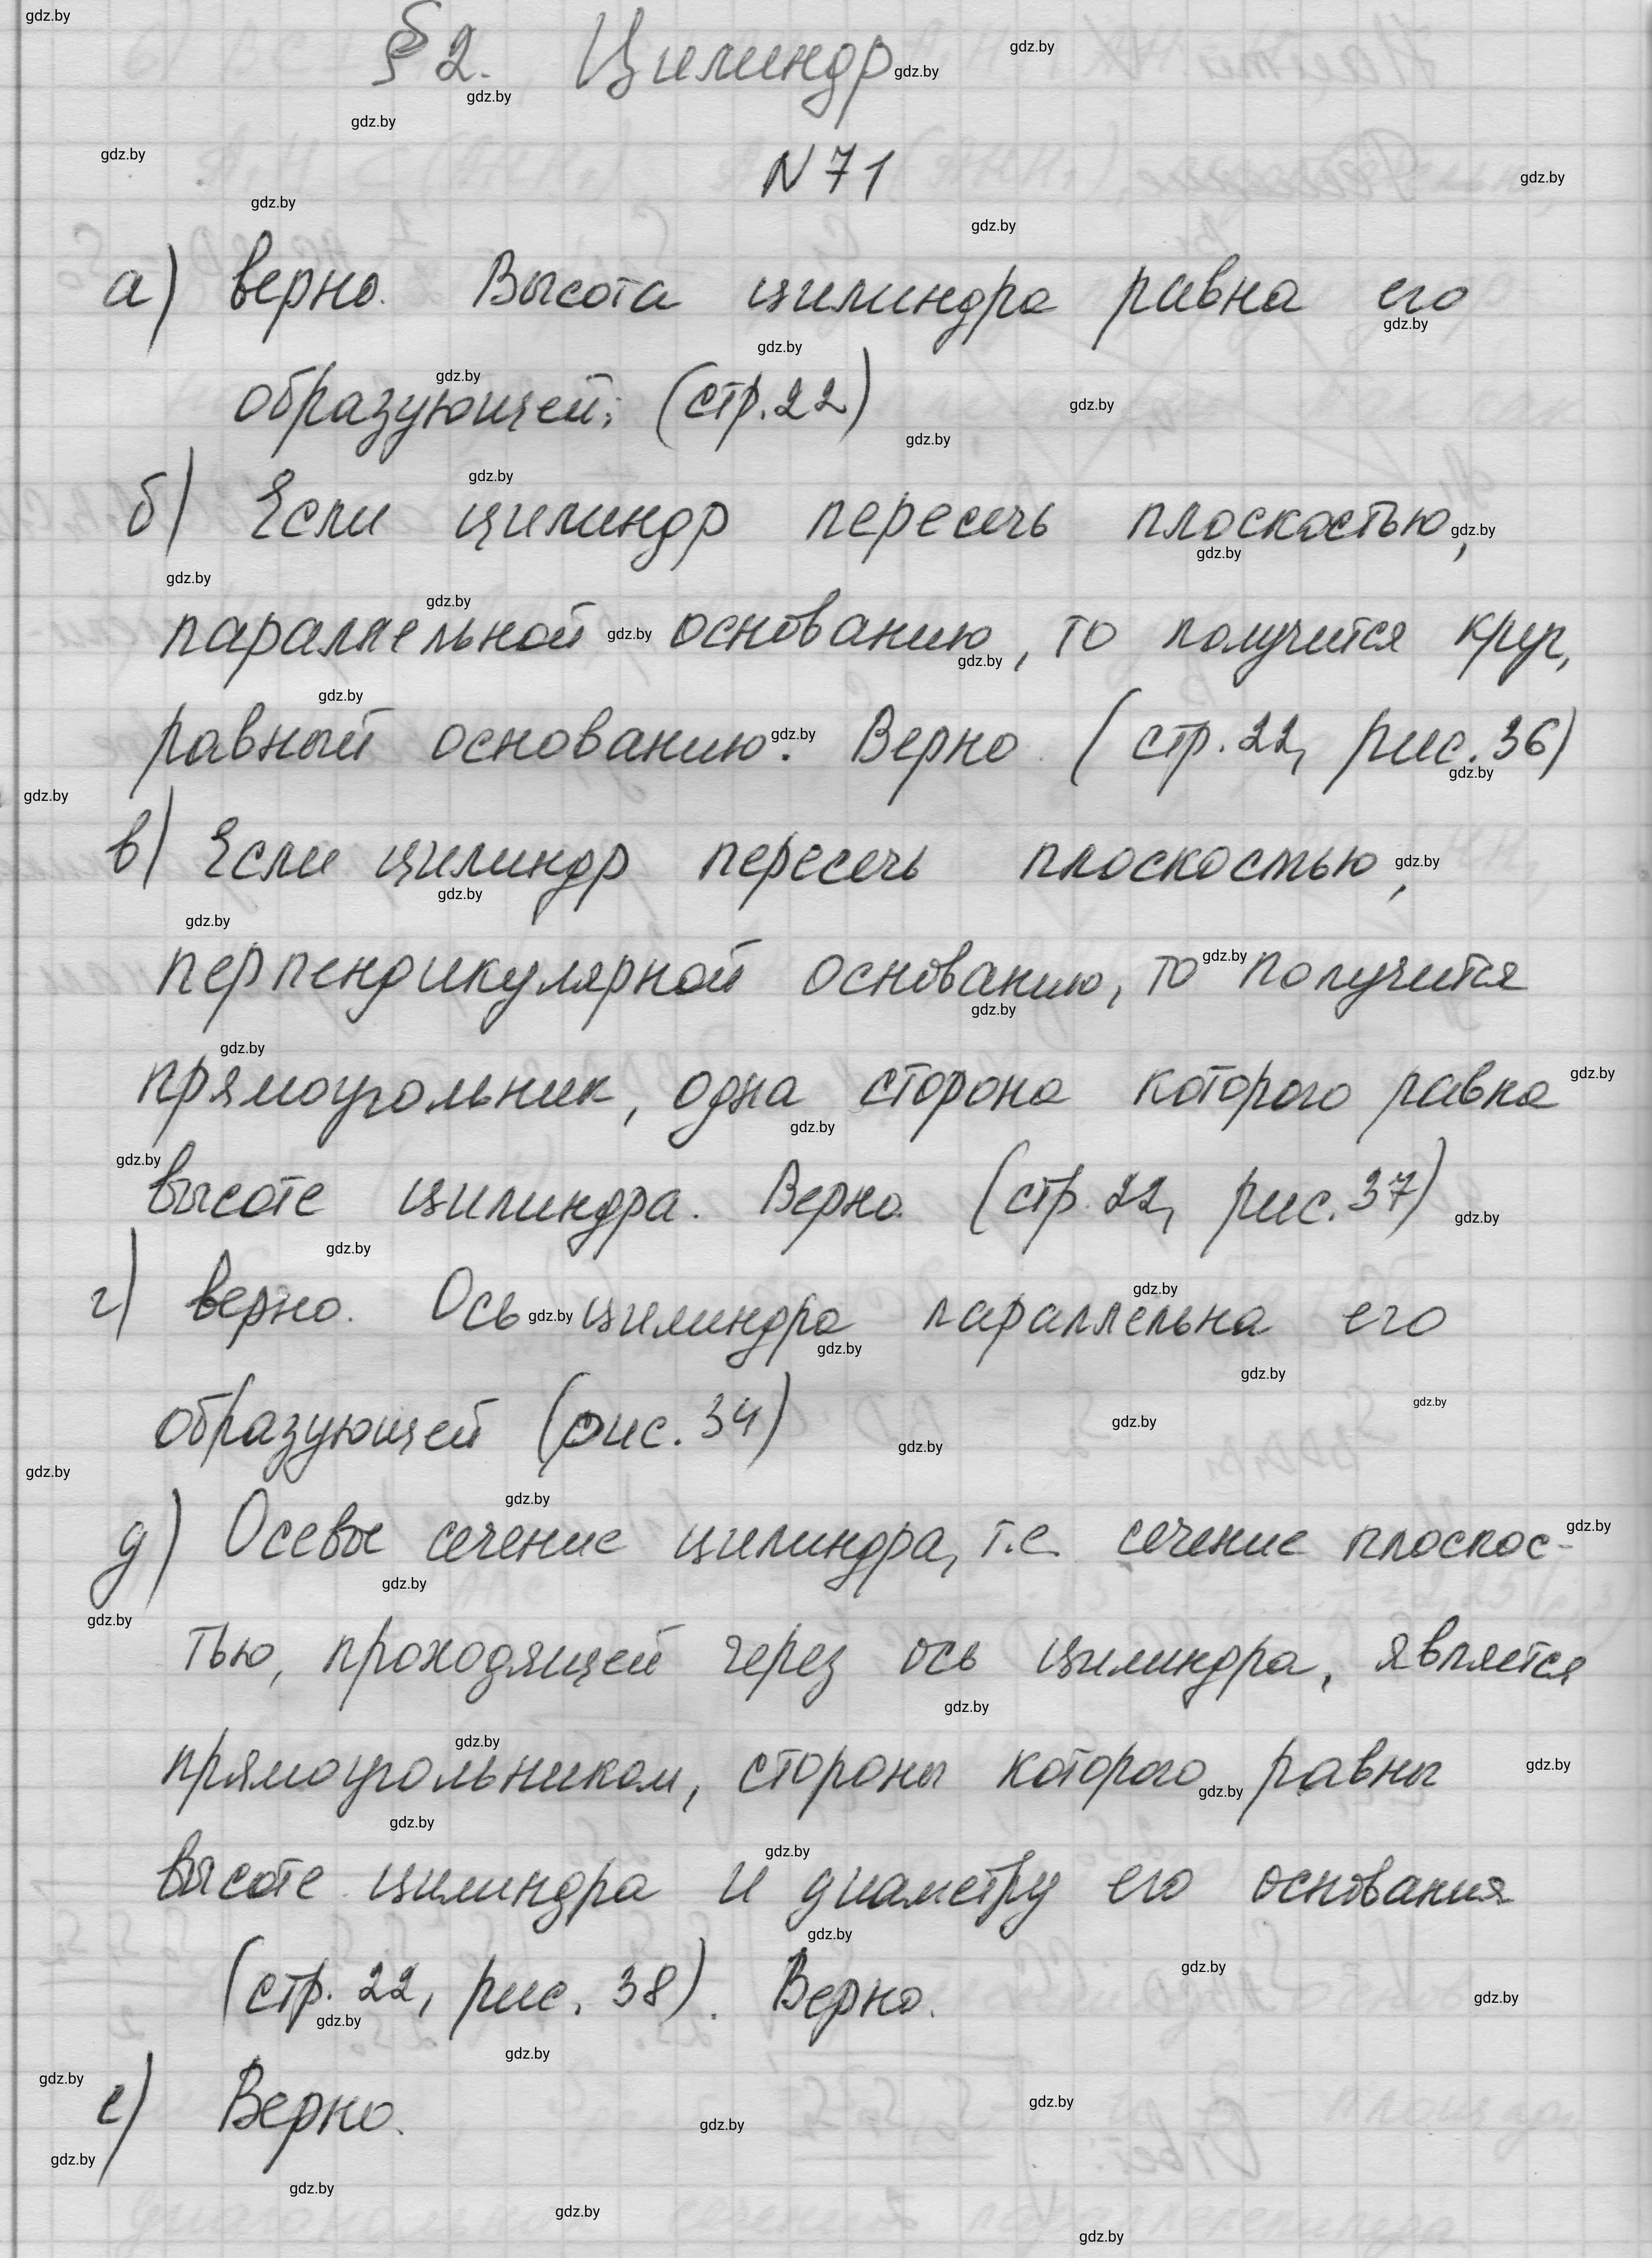 §2. Цилиндр
N 71
а) верно. Высота цилиндра равна его
образующей; (стр. 22)
б) Если цилиндр пересечь плоскостью,
параллельной основанию, то получится круг,
равный основанию. Верно (стр. 22, рис. 36)
в) Если цилиндр пересечь плоскостью,
перпендикулярной основанию, то получится
прямоугольник, одна сторона которого равна
высоте цилиндра. Верно. (стр. 22, рис. 37)
г) верно. Ось цилиндра параллельна его
образующей (рис. 34)
д) Осевое сечение цилиндра, т.е. сечение плоскос-
тью, проходящей через ось цилиндра, является
прямоугольником, стороны которого равны
высоте цилиндра и диаметру его основания
(стр. 22, рис. 38). Верно.
е) Верно.
gdz.by